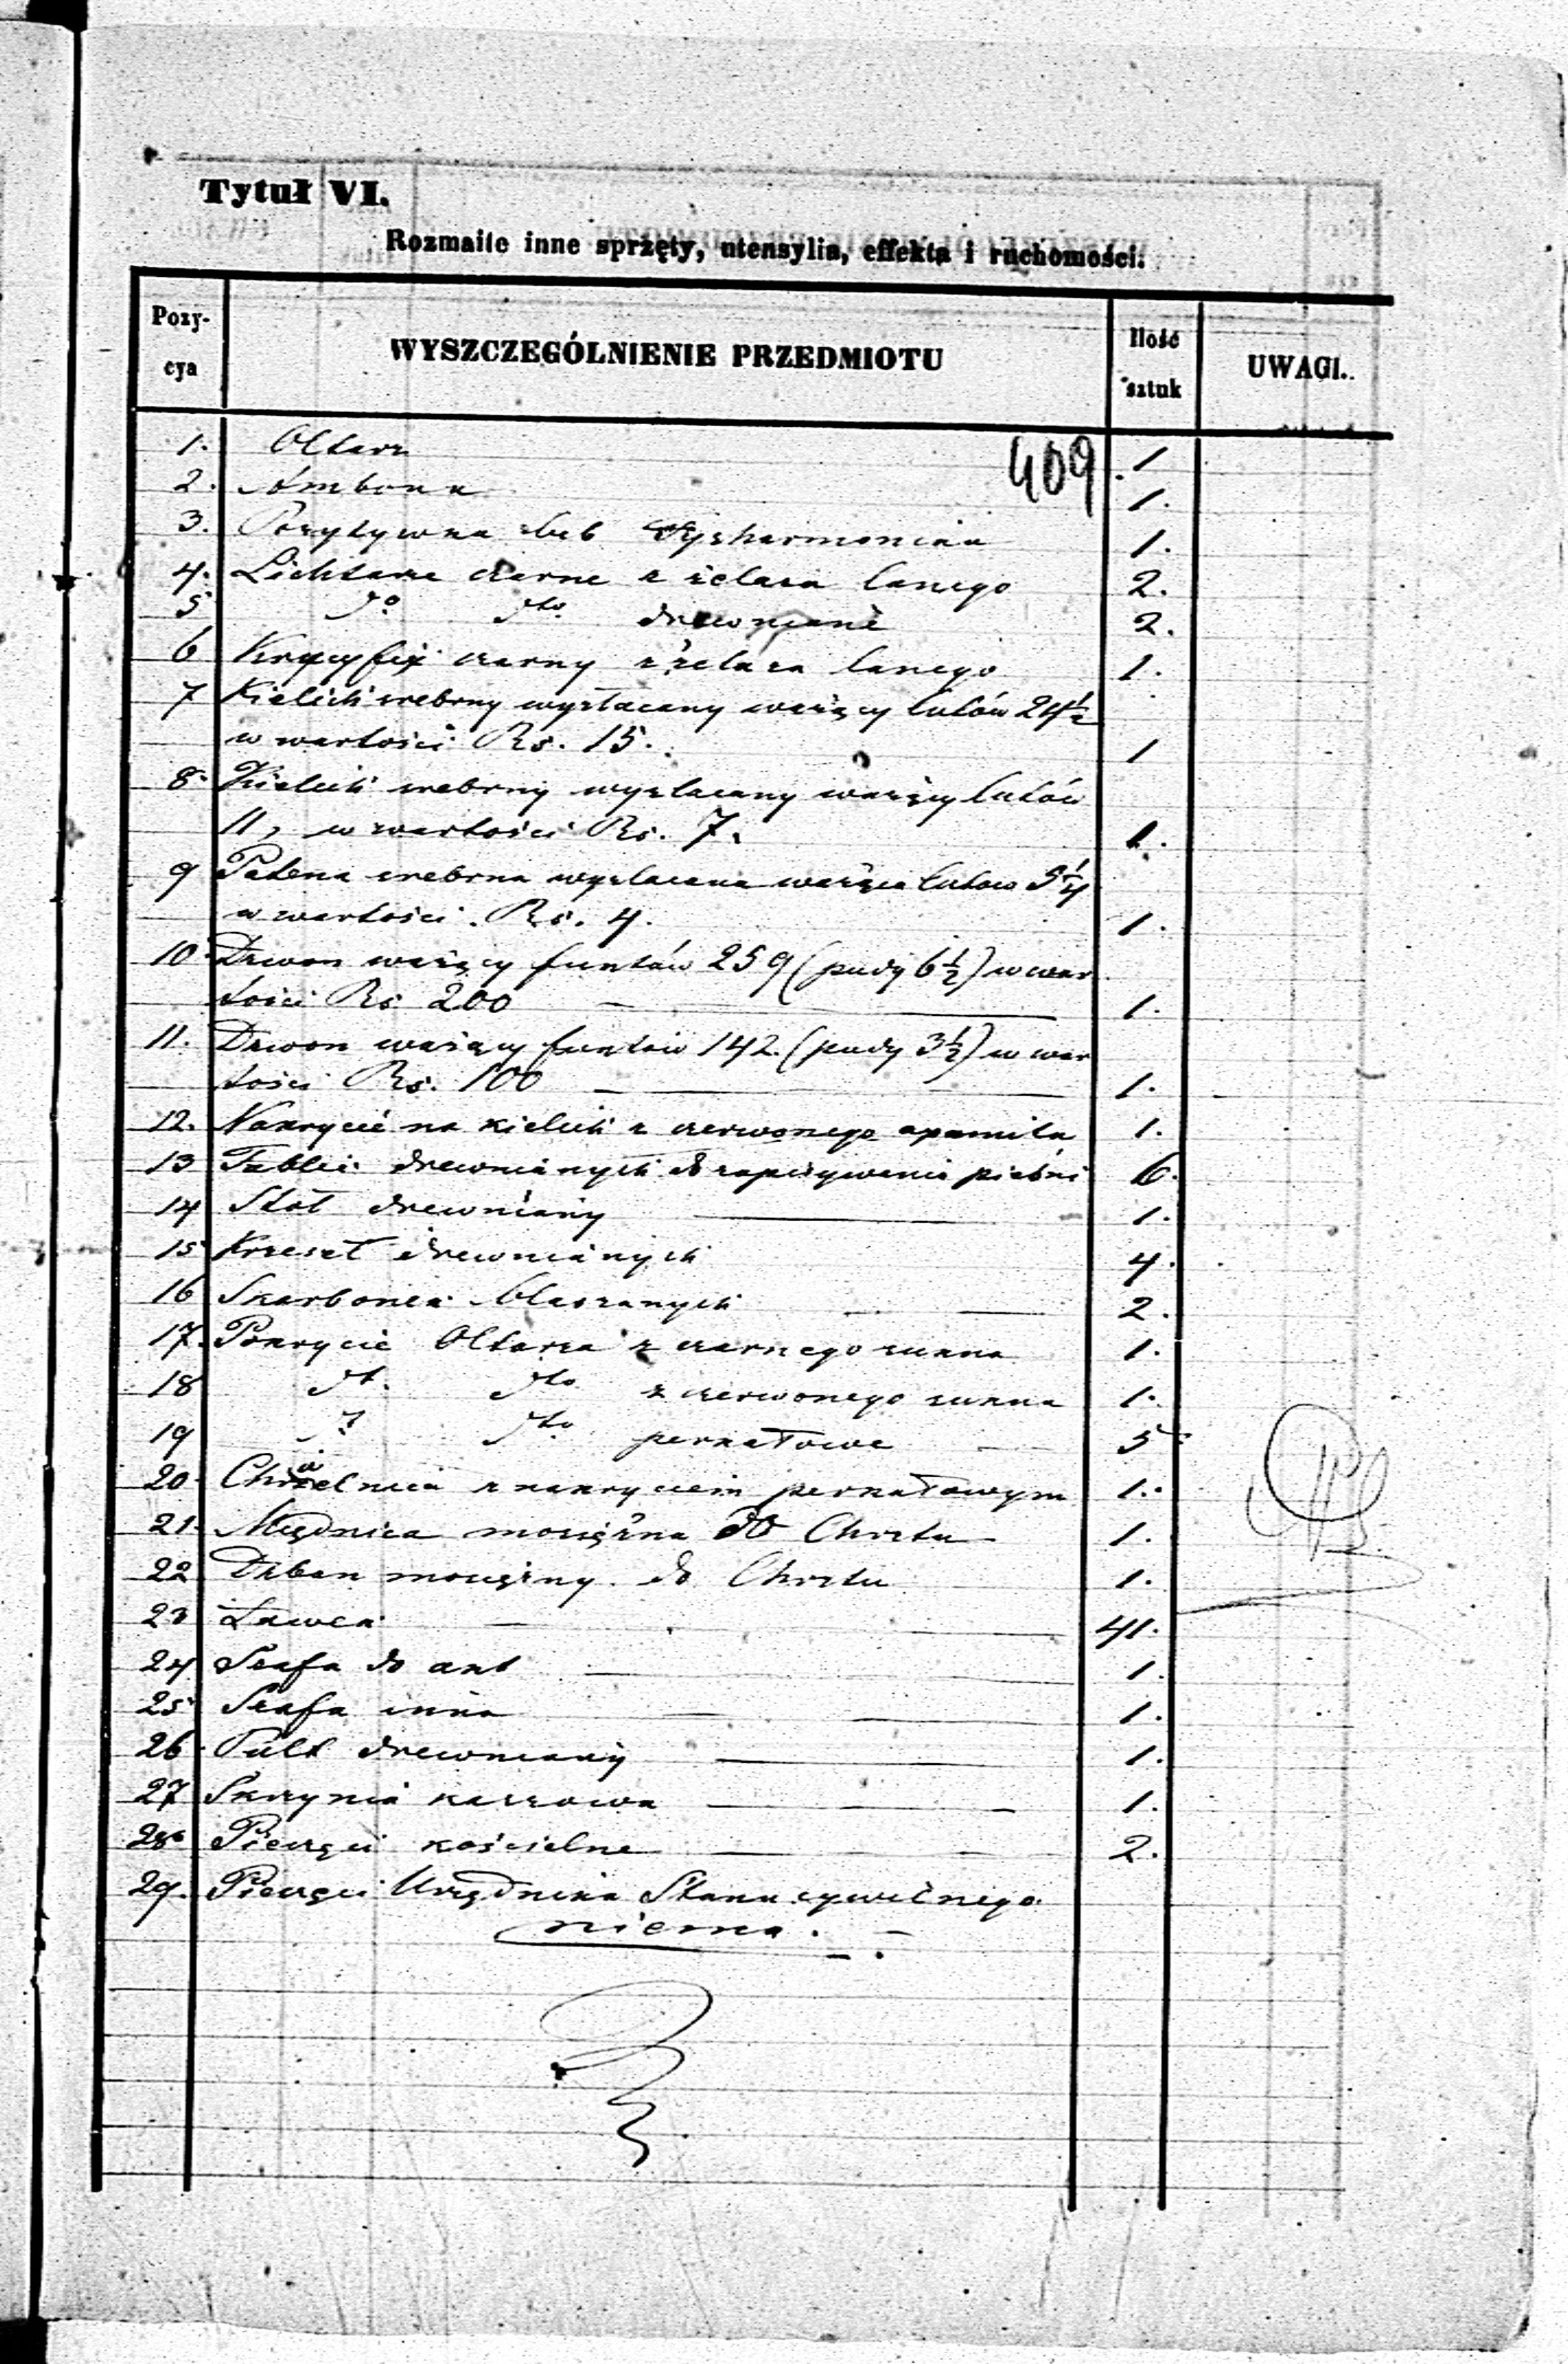 Tytuł VI.
Rozmaite inne sprzęty, utensylia, effekta i ruchomości.
Pozy-cya WYSZCZEGÓLNIENIE PRZEDMIOTU Ilość sztuk UWAGI.
409
1. Ołtarz 1
2. Ambona 1.
3. Pozytywka lub Fysharmonika 1.
4. Lichtarze czarne z żelaza lanego 2.
5 do dto drewniane 2.
6 Krucyfix czarny z żelaza lanego 1.
7 Kielich srebrny wyzłacany ważący łutów 24½
w wartości Rs. 15. 1
8. Kielich srebrny wyzłacany ważący łutów
11, w wartości Rs. 7. 1.
9 Patena srebrna wyzłacana ważąca łutów 5¼
w wartości Rs. 4. 1.
10 Dzwon ważący funtów 259 (pudy 6½) w war
tości Rs 200 1.
11. Dzwon ważący funtów 142. (pudy 3½) w war
tości Rs. 100 1.
12. Nakrycie na kielich z czerwonego axamitu 1.
13 Tablic drewnianych do zapisywania pieśni 6.
14 Stół drewniany 1.
15 Krzeseł drewnianych 4.
16 Skarbonek blaszanych 2.
17. Pokrycie Ołtarza z czarnego sukna 1.
18 dt. dto z czerwonego sukna 1.
19 d dto perkalowe 5
20 Chrzcielnica z nakryciem perkalowym 1.
21 Miednica mosiężna do Chrztu 1.
22 Dzban mosiężny do Chrztu 1.
23 Ławek 41.
24 Szafa do akt 1.
25 Szafa inna 1.
26 Pult drewniany 1.
27 Skrzynia kassowa 1.
28 Pieczęci kościelne 2.
29. Pieczęci Urzędnika Stanu cywilnego
niema.